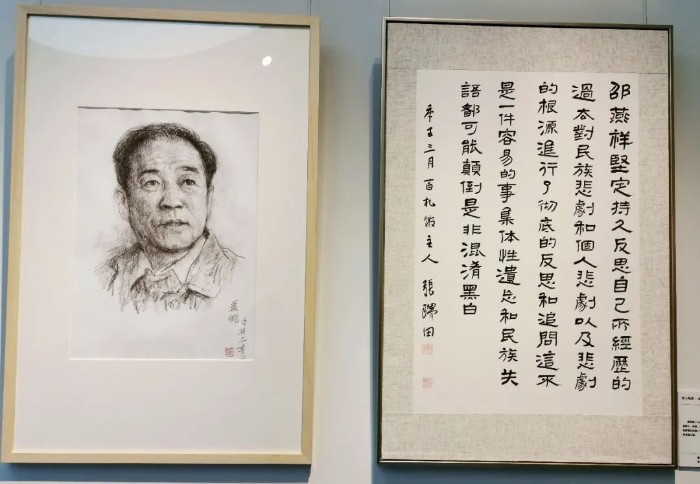 邵燕祥堅定持久反思自己所經歷的
過去對民族悲劇和個人悲劇以及悲劇
的根源進行了彻底的反思和追問這不
是一件容易的事集体性遺忘和民族失
語都可能顛倒是非混淆黑白
三月百札館主人張瑞田